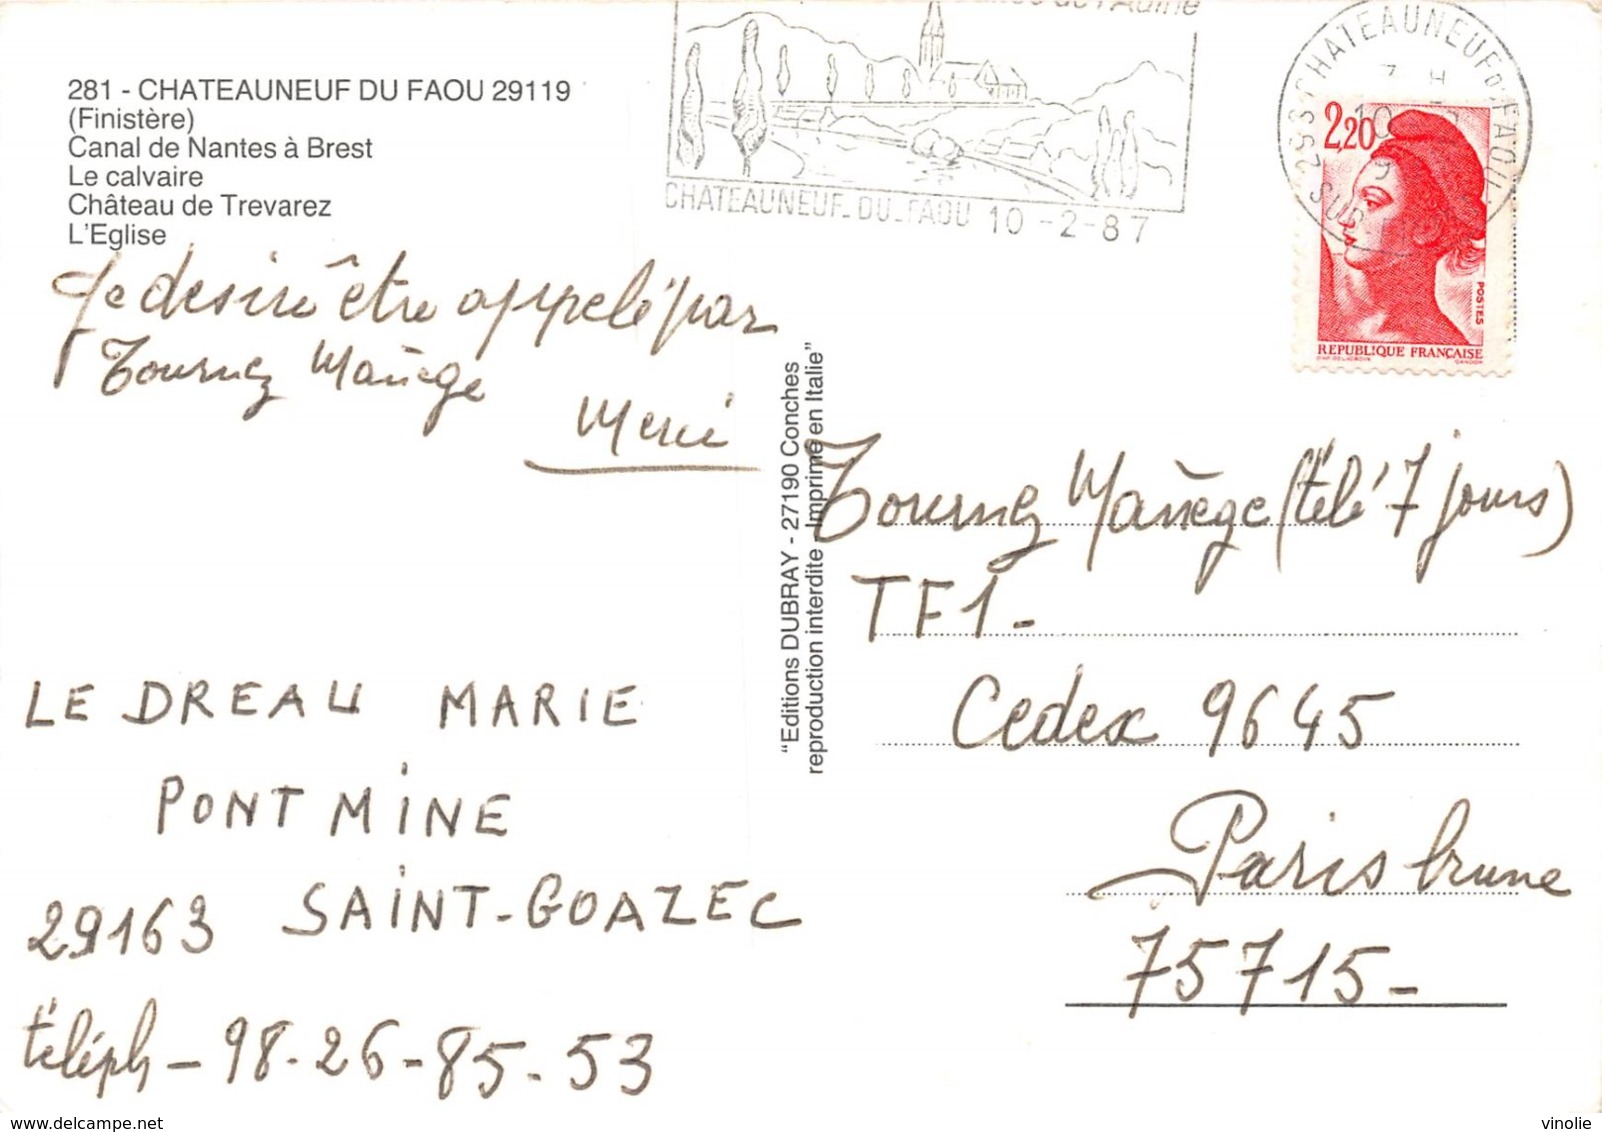 281 - CHATEAUNEUF DU FAOU 29119
(Finistère)
Canal de Nantes à Brest
Le calvaire
Château de Trevarez
L'Eglise
Je desire être appelé par
Tournez Manège
Merci
LE DREAU MARIE
PONT MINE
29163 SAINT-GOAZEC
téléph - 98-26-85-53
"Editions DUBRAY - 27190 Conches
reproduction interdite - Imprimé en Italie"
de l'Aulne
CHATEAUNEUF-DU-FAOU 10 -2-87
CHATEAUNEUF D. FAOU
10
29 SUD
2,20
POSTES
REPUBLIQUE FRANÇAISE
Tournez Manège (télé 7 jours)
TF1-
Cedex 9645
Paris brune
75715-
delcampe.net
vinolie